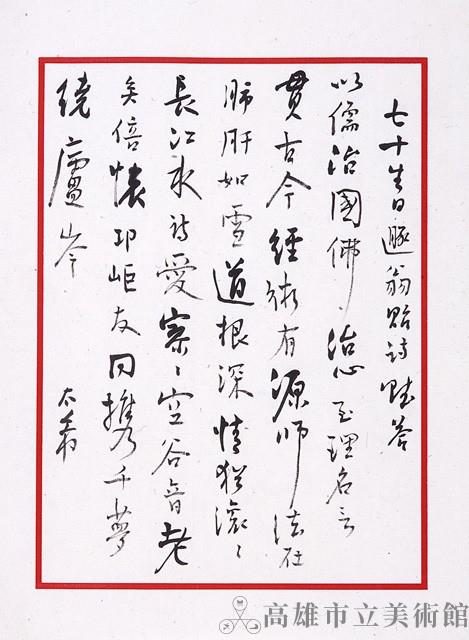 七十生日遯翁貽詩賦答
以儒治國佛治心至理名言
貫古今經術有源師法在
肺肝如雪道根深情猶滾〻
長江水詩愛寥〻空谷音老
矣倍懷邛岠友同攜千夢
繞廬岑
太希
高雄市立美術館